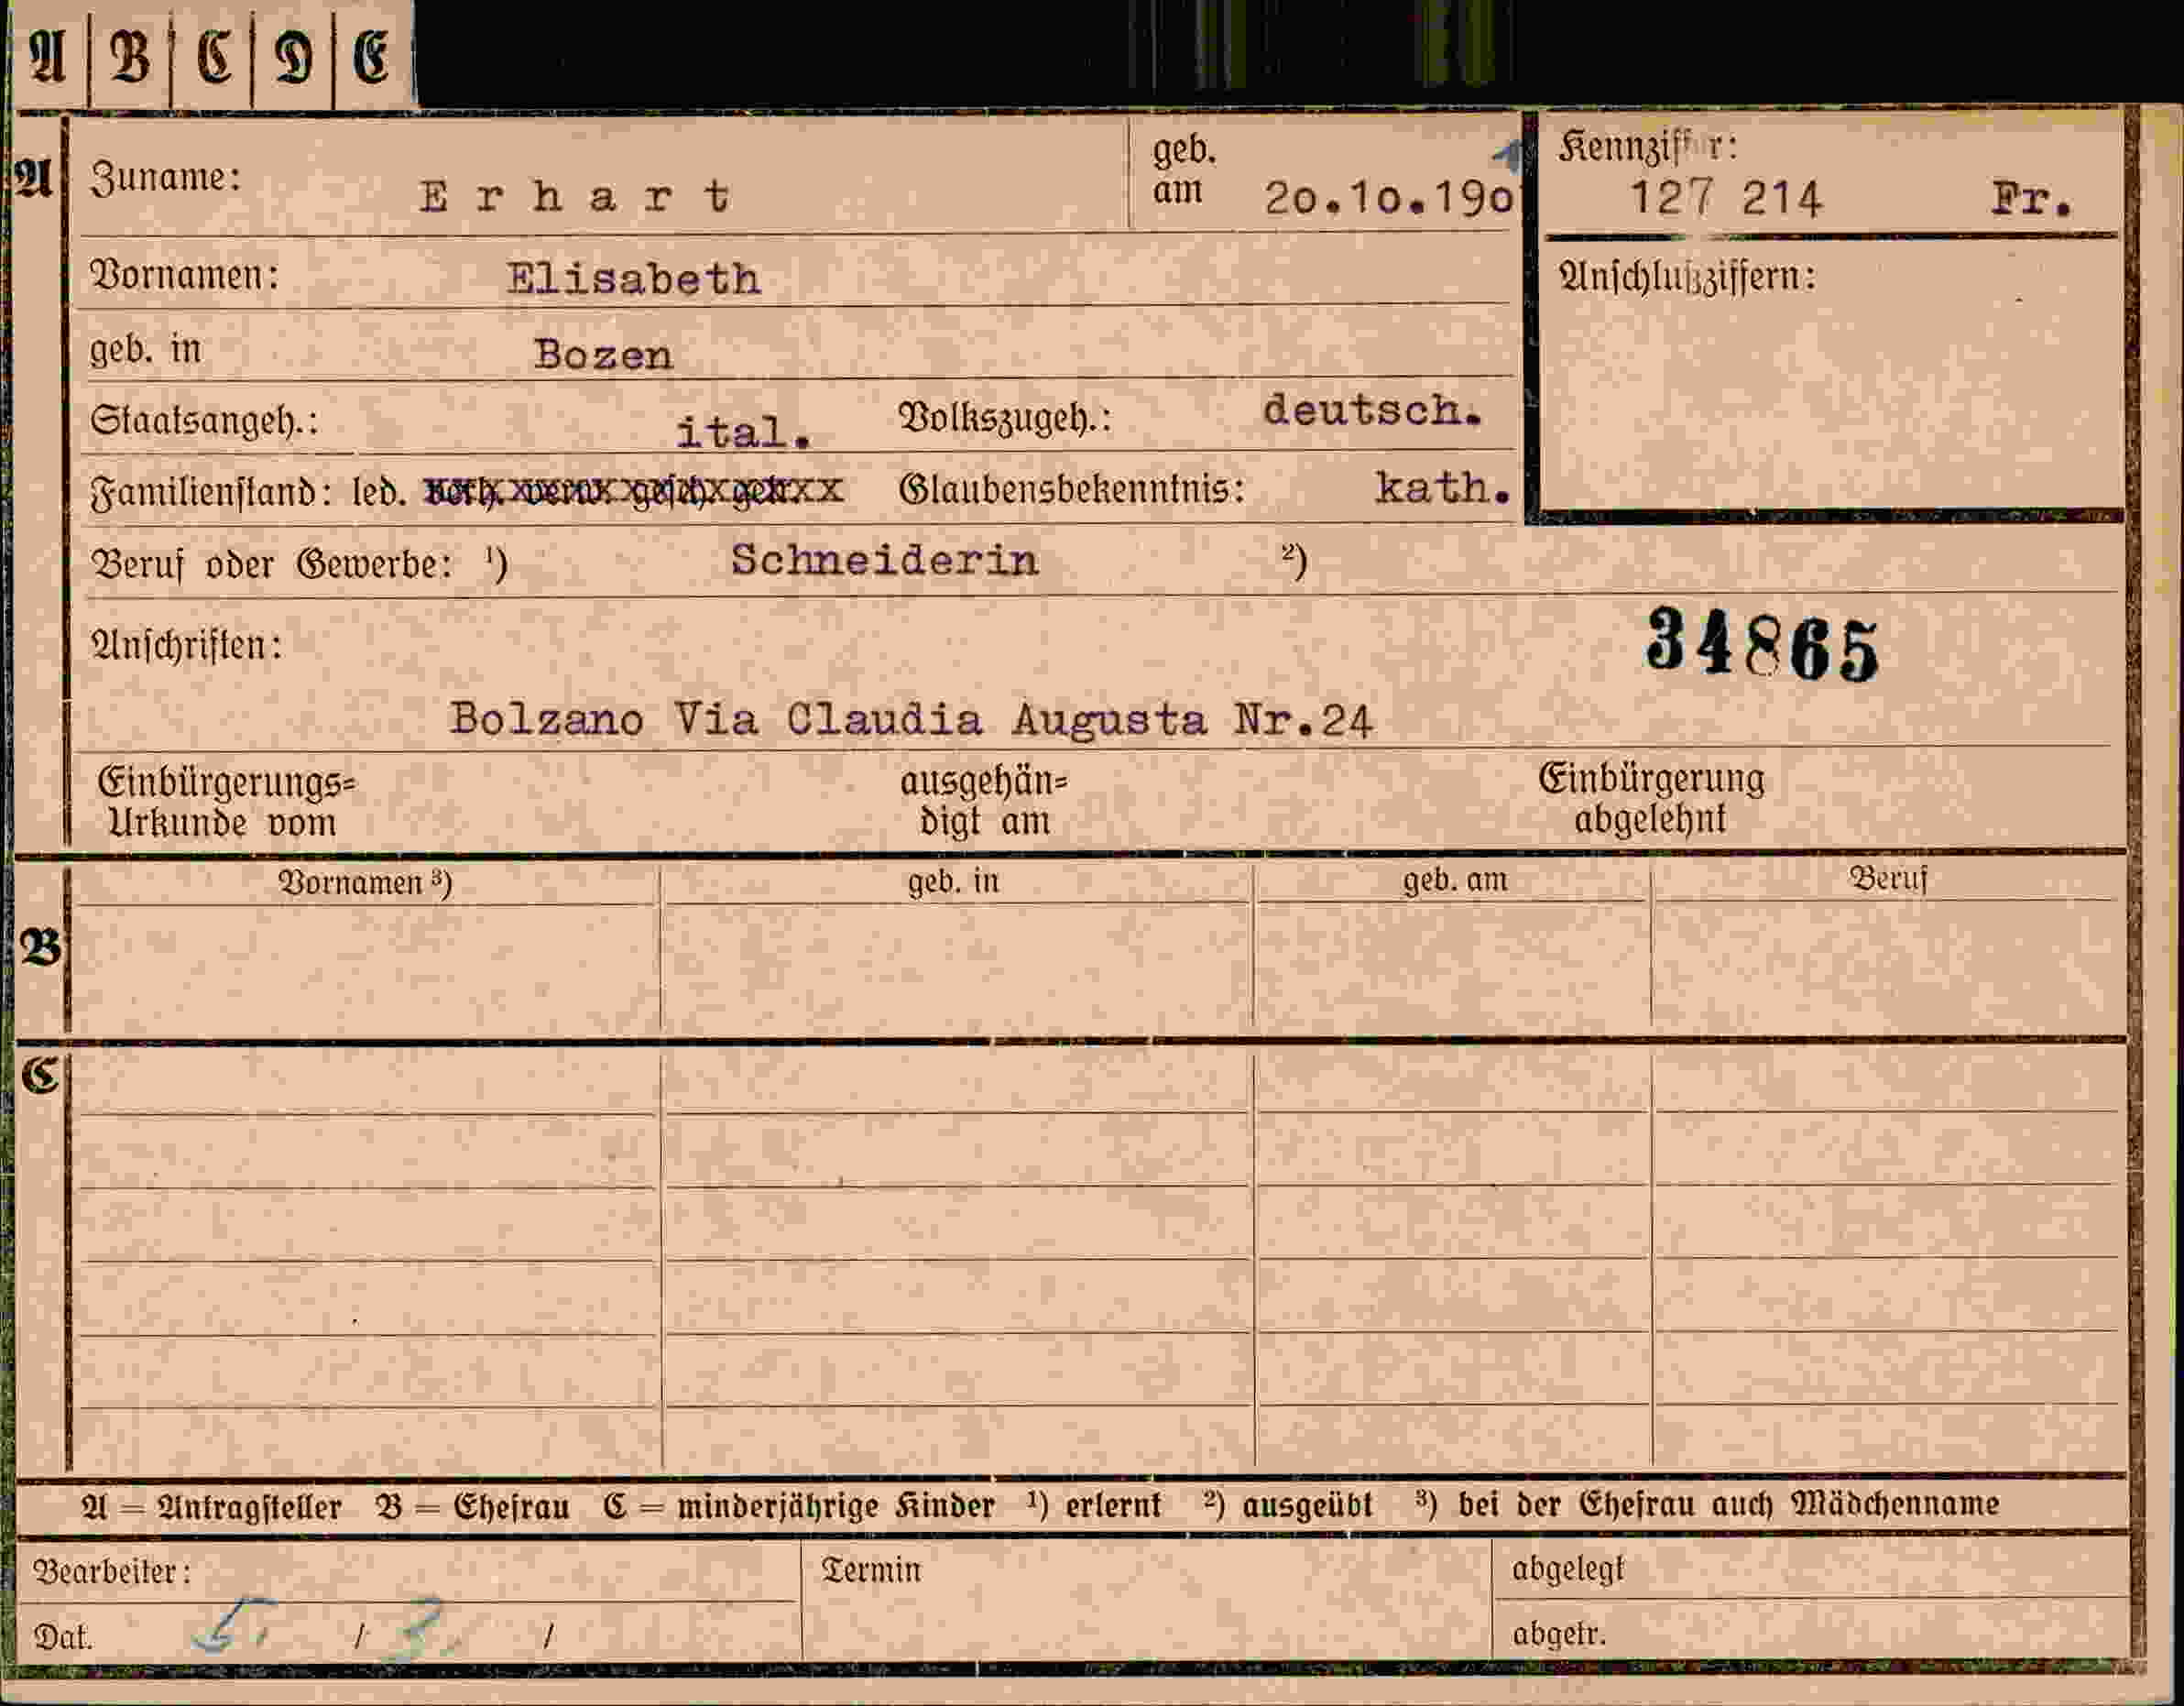 A B C D E
A Zuname: Erhart geb. am 20.10.190 Kennziffer: 127 214 Fr.
Vornamen: Elisabeth Anschlußziffern:
geb. in Bozen
Staatsangeh.: ital. Volkszugeh.: deutsch.
Familienstand: led. verh. verw. gesch. getr. Glaubensbekenntnis: kath.
Beruf oder Gewerbe: ¹) Schneiderin ²)
Anschriften: 34865
Bolzano Via Claudia Augusta Nr.24
Einbürgerungs= Urkunde vom ausgehän= digt am Einbürgerung abgelehnt
B Vornamen ³) geb. in geb. am Beruf
C
A = Antragsteller B = Ehefrau C = minderjährige Kinder ¹) erlernt ²) ausgeübt ³) bei der Ehefrau auch Mädchenname
Bearbeiter: Termin abgelegt
Dat. 5. / 3. / abgetr.